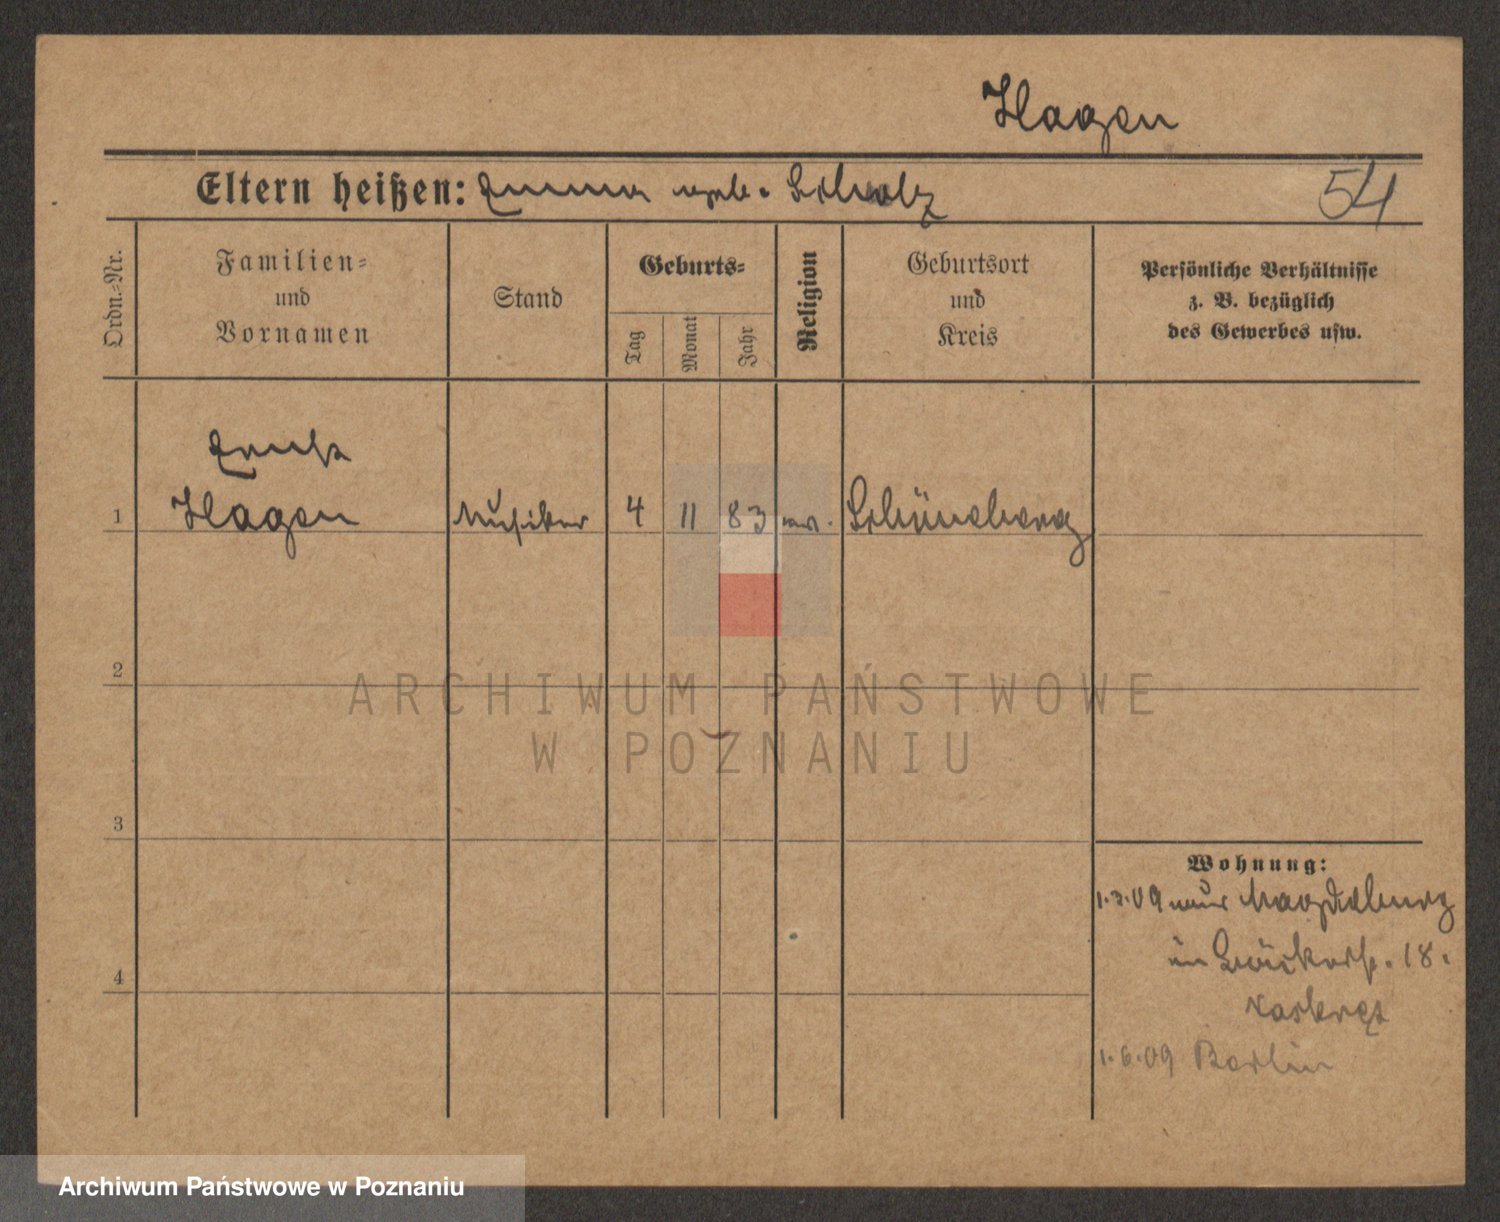 Hagen
Eltern heißen: Emma geb. Scholz
54
Ordn.-Nr.
Familien-
und
Vornamen
Stand
Geburts-
Tag
Monat
Jahr
Religion
Geburtsort
und
Kreis
Persönliche Verhältnisse
z. B. bezüglich
des Gewerbes usw.
Ernst
1 Hagen Musiker 4 11 83 ev. Schöneberg
2
3
4
Wohnung:
1.3.09 Magdeburg
18.
1.6.09 Berlin
ARCHIWUM PAŃSTWOWE
W POZNANIU
Archiwum Państwowe w Poznaniu